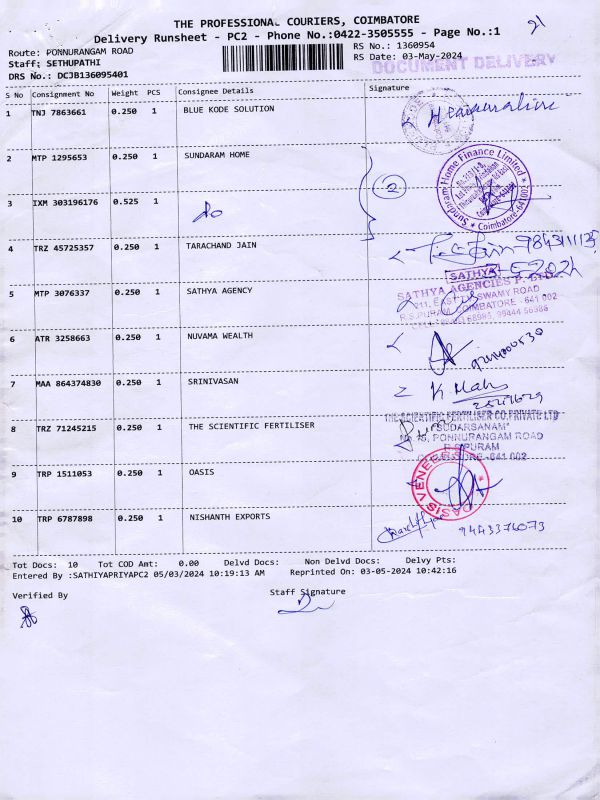 THE PROFESSIONAL COURIERS, COIMBATORE
Delivery Runsheet - PC2 - Phone No.:0422-3505555 - Page No.:1
21
Route: PONNURANGAM ROAD
RS No.: 1360954
Staff: SETHUPATHI
RS Date: 03-May-2024
DOCUMENT DELIVERY
DRS No.: DCJB136095401
S No Consignment No Weight PCS Consignee Details Signature
1 TNJ 7863661 0.250 1 BLUE KODE SOLUTION
2 MTP 1295653 0.250 1 SUNDARAM HOME
Sundaram Home Finance Limited
Coimbatore-641002
2
3 IXM 303196176 0.525 1 do
4 TRZ 45725357 0.250 1 TARACHAND JAIN
5 MTP 3076337 0.250 1 SATHYA AGENCY
SATHYA
SATHYA AGENCIES P. LTD
R.S.PURAM, COIMBATORE - 641 002
6 ATR 3258663 0.250 1 NUVAMA WEALTH
7 MAA 864374830 0.250 1 SRINIVASAN
8 TRZ 71245215 0.250 1 THE SCIENTIFIC FERTILISER
THE SCIENTIFIC FERTILISER CO.PRIVATE LTD
"SUDARSANAM"
No 75, PONNURANGAM ROAD
R.S.PURAM
COIMBATORE-641 002
9 TRP 1511053 0.250 1 OASIS
OASIS VENEERS
10 TRP 6787898 0.250 1 NISHANTH EXPORTS
9443376073
Tot Docs: 10 Tot COD Amt: 0.00 Delvd Docs: Non Delvd Docs: Delvy Pts:
Entered By :SATHIYAPRIYAPC2 05/03/2024 10:19:13 AM Reprinted On: 03-05-2024 10:42:16
Verified By
Staff Signature